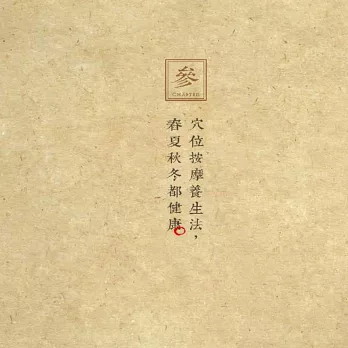 參
CHAPTER
穴位按摩養生法，
春夏秋冬都健康